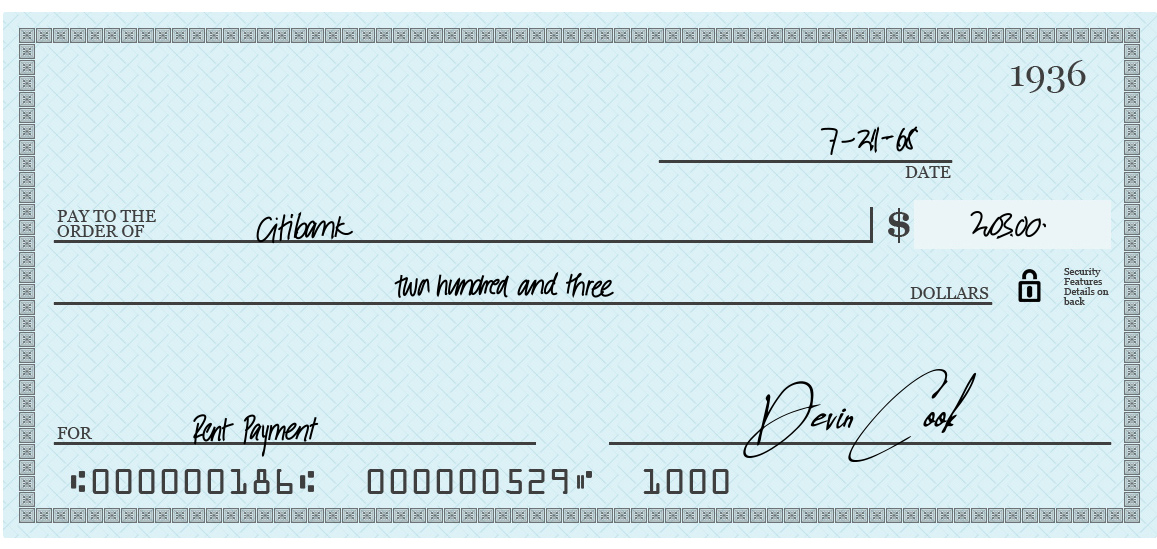 1936
7-21-68
DATE
PAY TO THE
ORDER OF
Citibank
$ 203.00
two hundred and three
DOLLARS
Security
Features
Details on
back
FOR
Rent Payment
Devin Cook
⑆000000186⑆ 000000529⑈ 1000